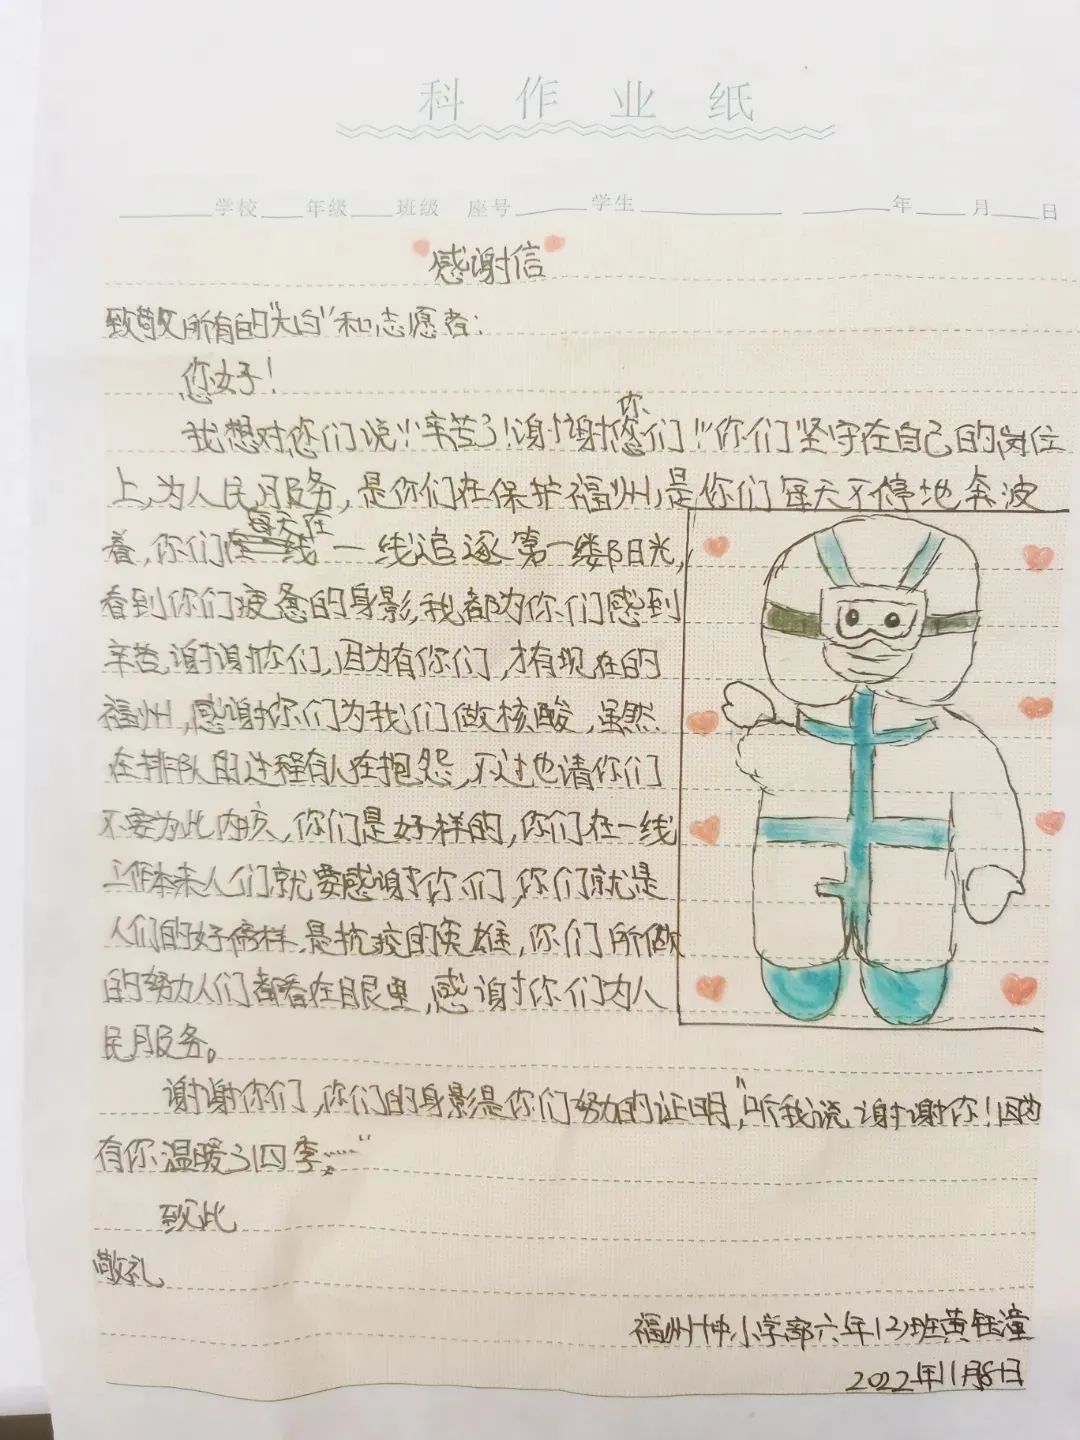 科作业纸
学校 年级 班级 座号 学生 年 月 日
感谢信
致敬所有的“大白”和志愿者:
您好!
我想对您们说!“辛苦了!谢谢你们!”你们坚守在自己的岗位
上,为人民服务,是你们在保护福州,是你们每天不停地奔波
着,你们每天在一线追逐第一缕阳光,
看到你们疲惫的身影,我都为你们感到
辛苦,谢谢你们,因为有你们,才有现在的
福州,感谢你们为我们做核酸,虽然
在排队的过程有人在抱怨,不过也请你们
不要为此内疚,你们是好样的,你们在一线
工作本来人们就要感谢你们,你们就是
人们的好榜样,是抗疫的英雄,你们所做
的努力人们都看在眼里,感谢你们为人
民服务。
谢谢你们,你们的身影是你们努力的证明,“听我说谢谢你!因为
有你温暖了四季……”
致此
敬礼
福州十中小学部六年(2)班黄钰潼
2022年11月8日